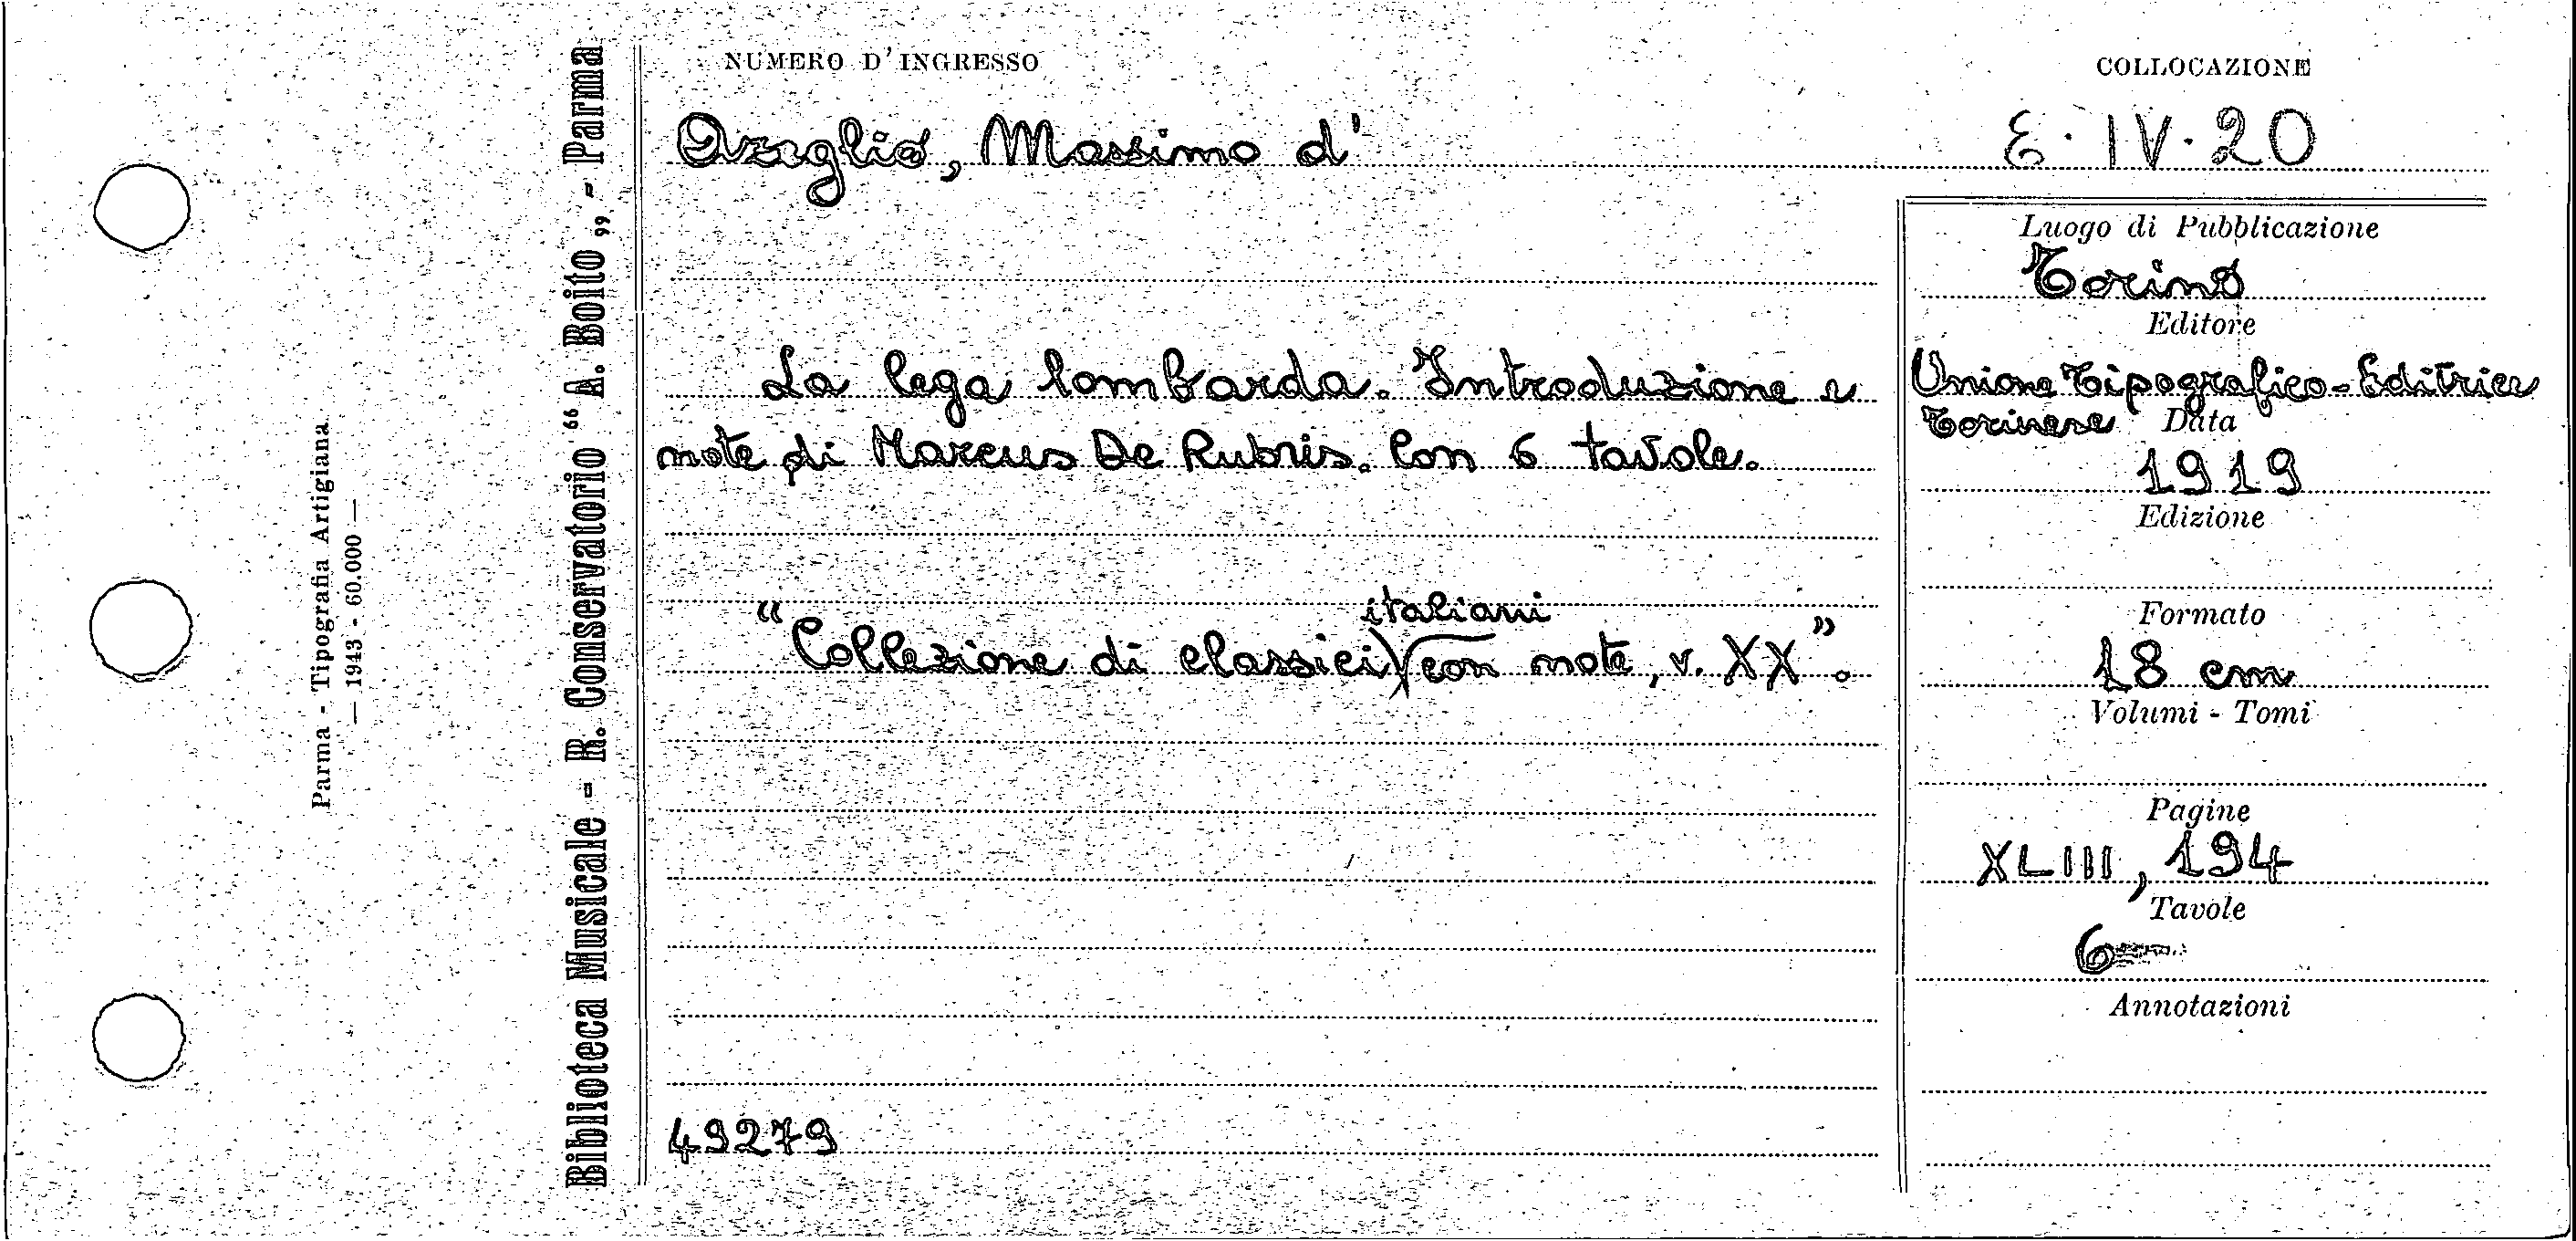 Parma - Tipografia Artigiana
— 1943 - 60.000 —
Biblioteca Musicale - R. Conservatorio “A. Boito„ - Parma
NUMERO D'INGRESSO
COLLOCAZIONE
Azeglio, Massimo d'
E. IV. 20
La lega lombarda. Introduzione e
note di Marcus De Rubris. Con 6 tavole.
italiani
“Collezione di classici con note, v. XX”.
49279
Luogo di Pubblicazione
Torino
Editore
Unione Tipografico-Editrice
Torinese
Data
1919
Edizione
Formato
18 cm
Volumi - Tomi
Pagine
XLIII, 194
Tavole
6
Annotazioni